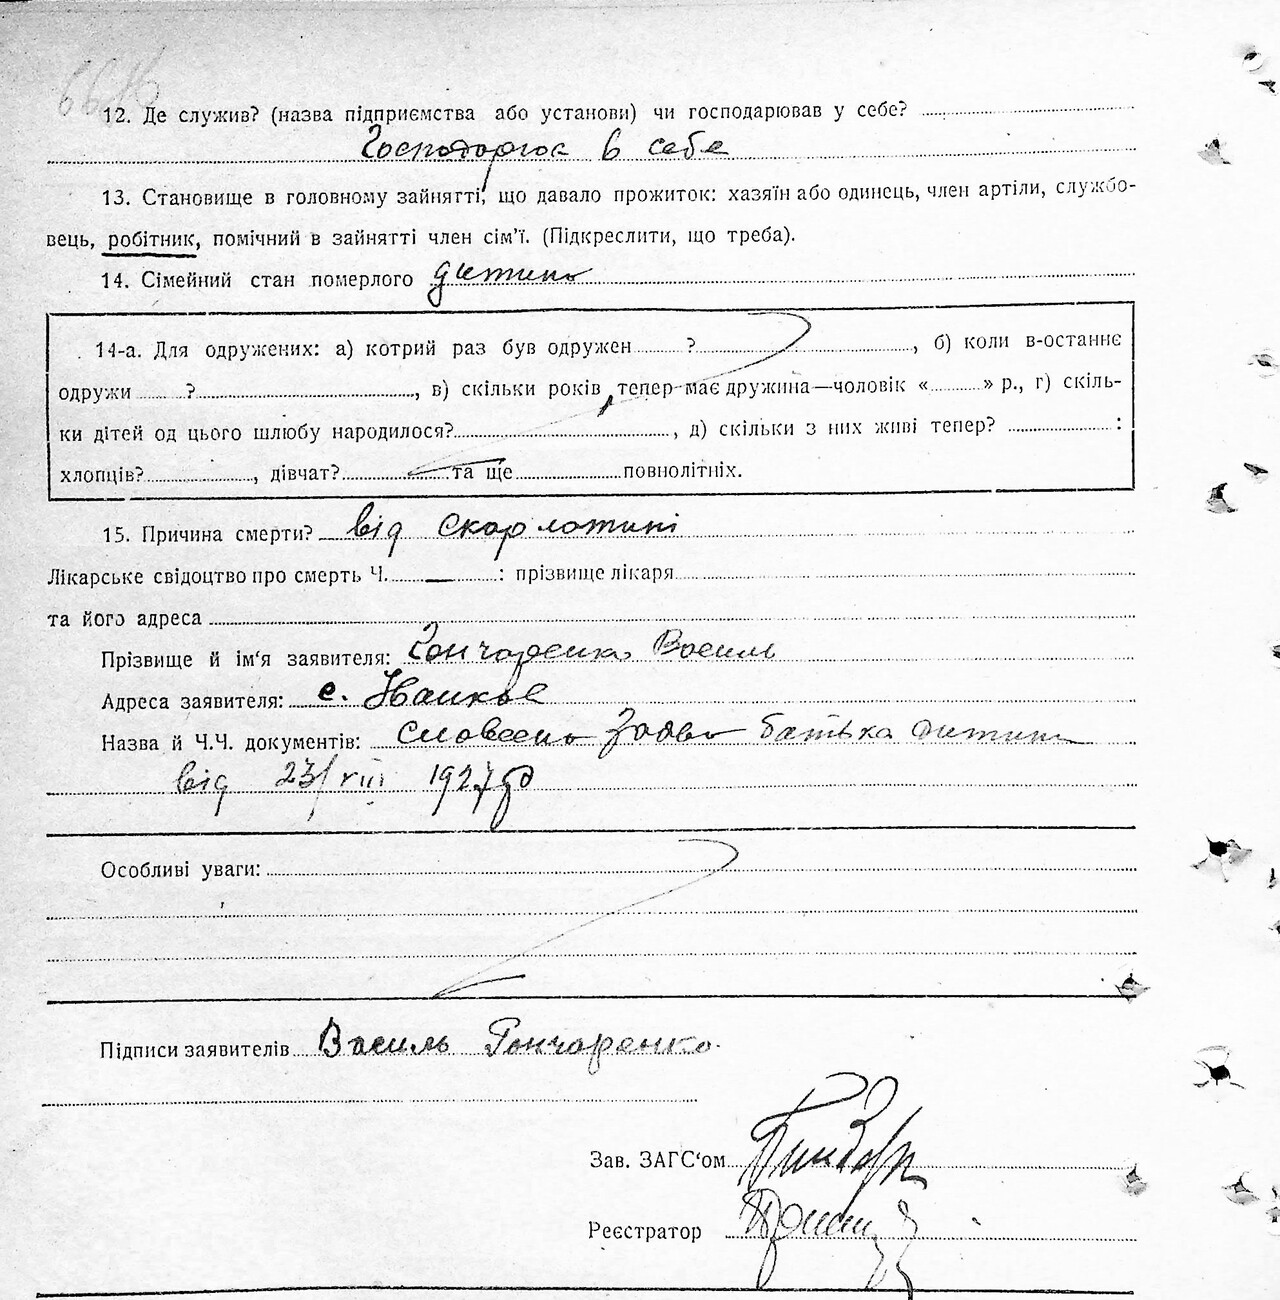 6616
12. Де служив? (назва підприємства або установи) чи господарював у себе?
Господарює в себе
13. Становище в головному зайнятті, що давало прожиток: хазяїн або одинець, член артіли, службо-
вець, робітник, помічний в зайнятті член сім'ї. (Підкреслити, що треба).
14. Сімейний стан померлого дитина
14-а. Для одружених: а) котрий раз був одружен ?, б) коли в-останнє
одружи ?, в) скільки років тепер має дружина—чоловік « » р., г) скіль-
ки дітей од цього шлюбу народилося?, д) скільки з них живі тепер? :
хлопців?, дівчат? та ще повнолітніх.
15. Причина смерти? від скарлатині
Лікарське свідоцтво про смерть Ч. — : прізвище лікаря
та його адреса
Прізвище й ім'я заявителя: Гончаренко Василь
Адреса заявителя: с.
Назва й Ч.Ч. документів: словесна заява батька дитини
від 23/VIII 1927 р
Особливі уваги:
Підписи заявителів Василь Гончаренко
Зав. ЗАГС'ом
Реєстратор